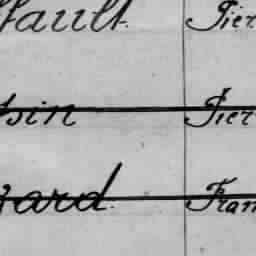 fault. Pier
sin Pier
zard. Fran